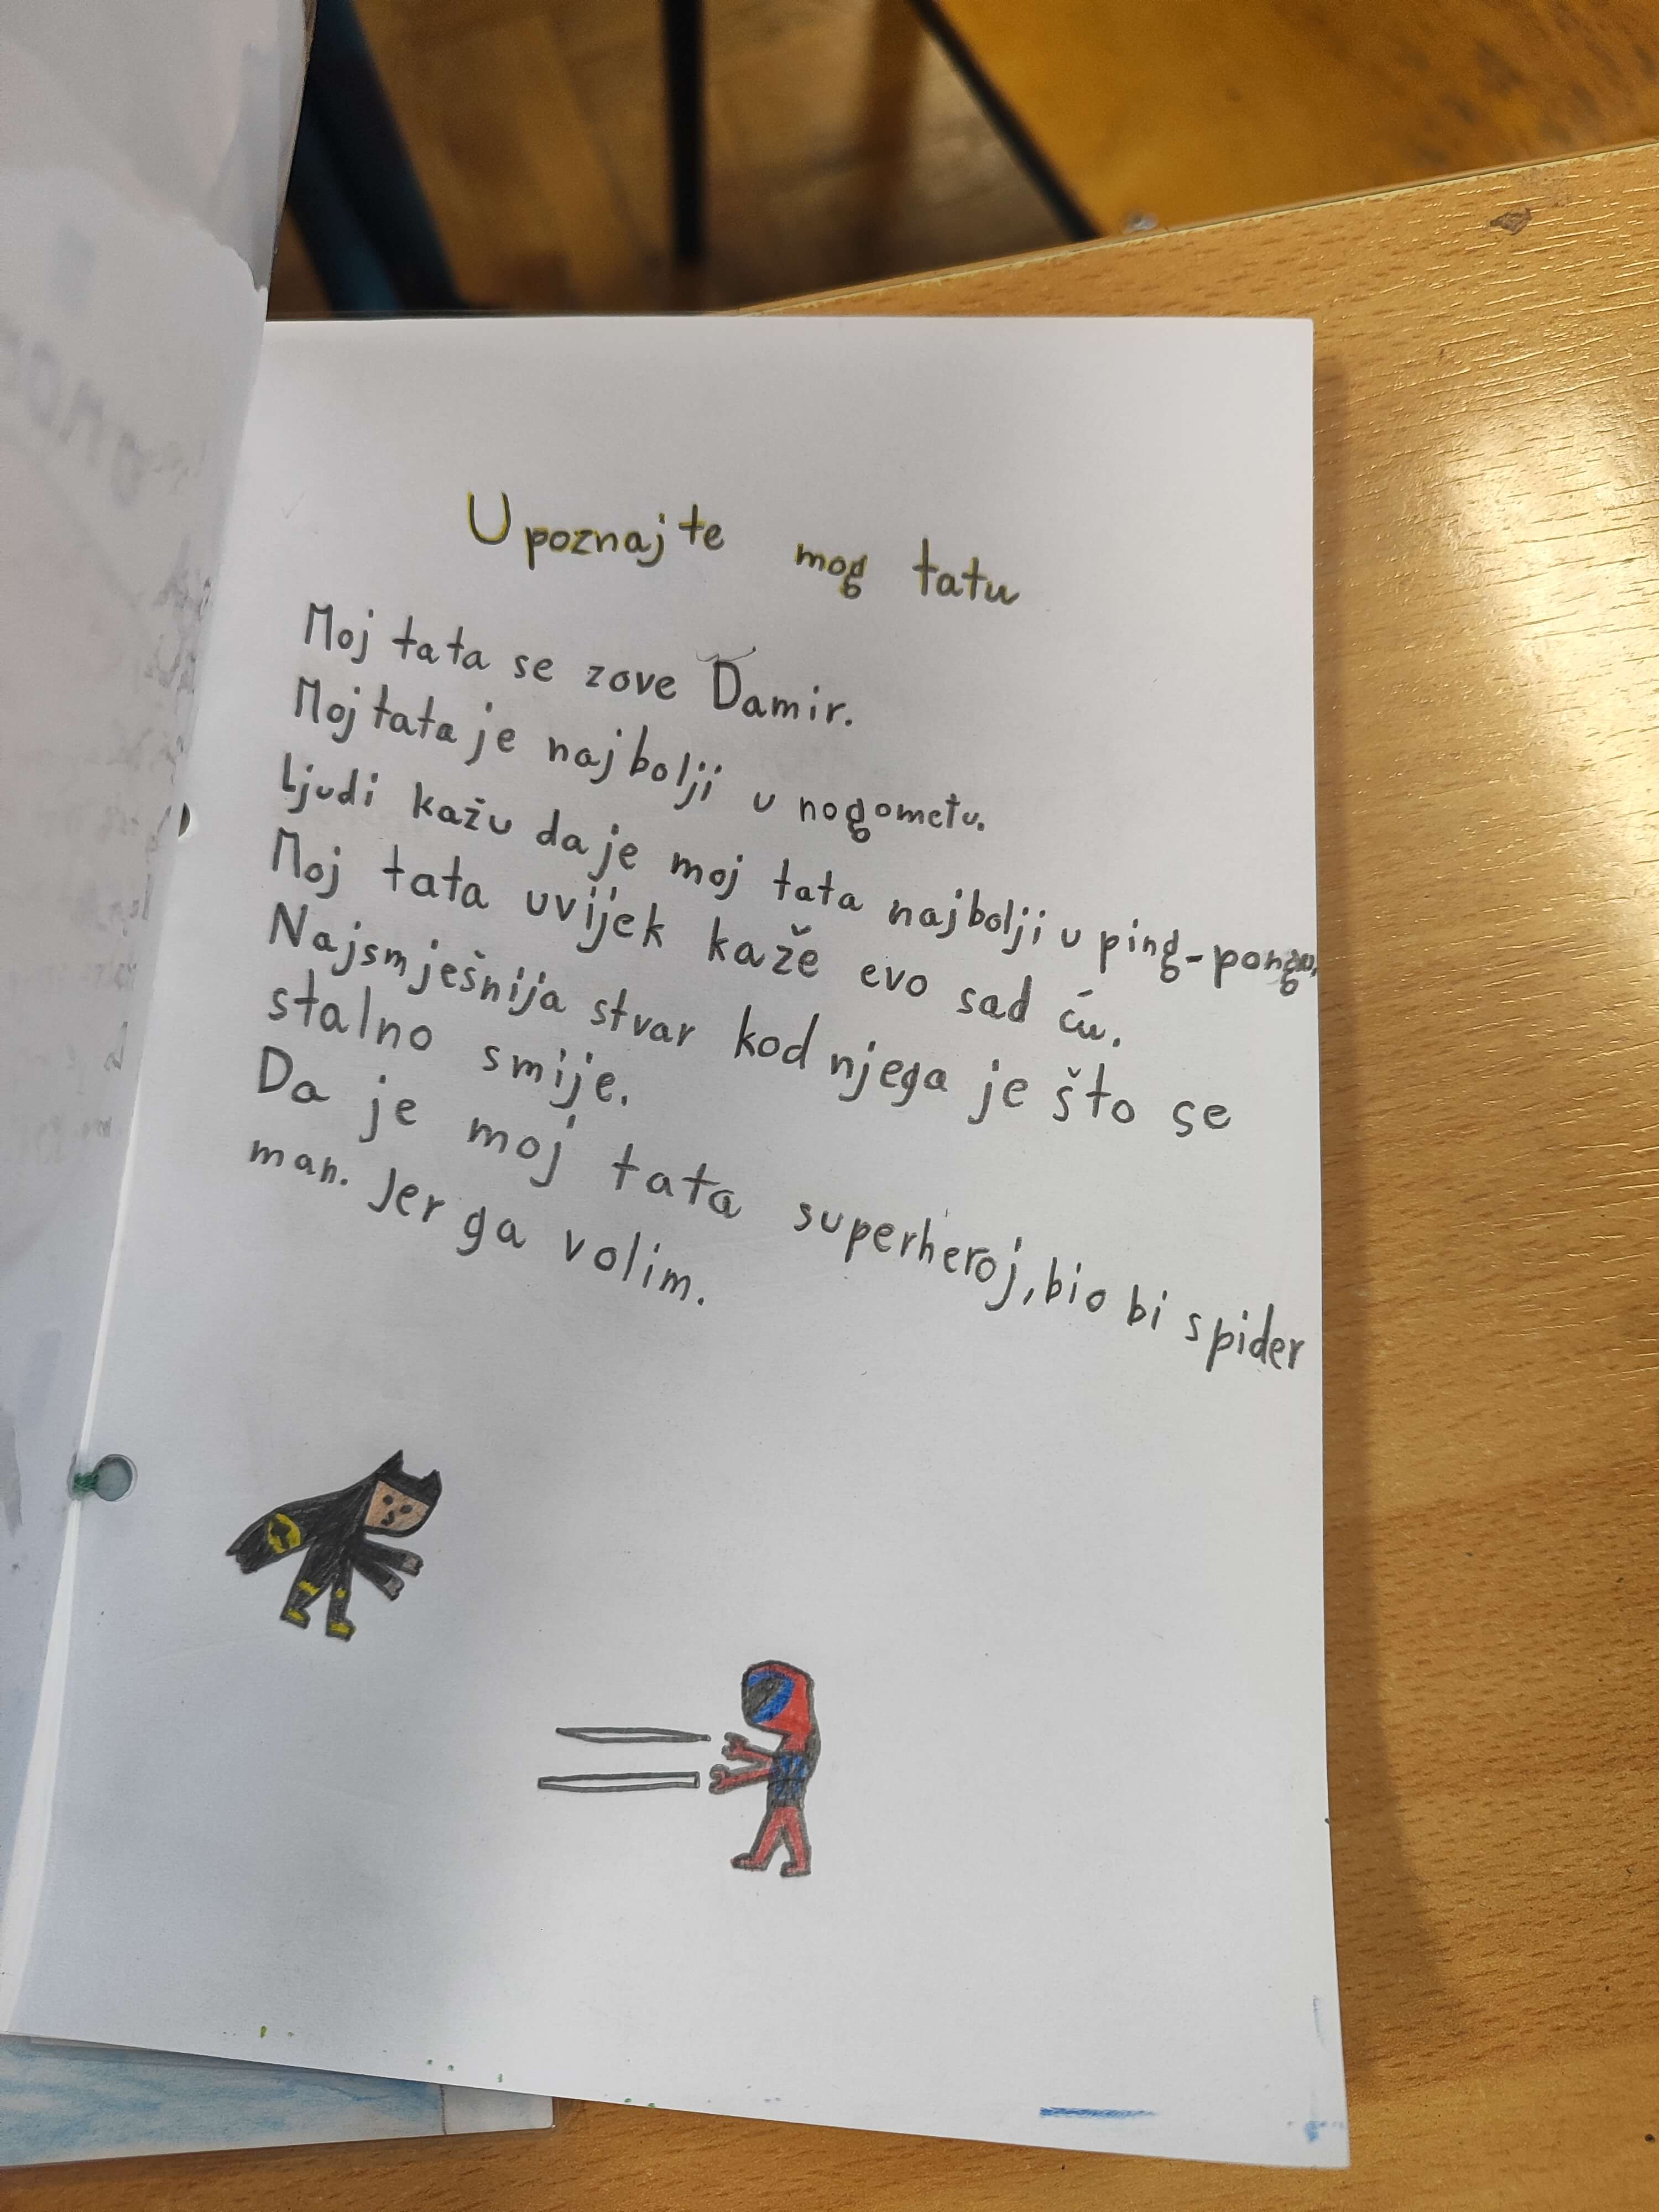 Upoznajte mog tatu
Moj tata se zove Damir.
Moj tata je najbolji u nogometu.
Ljudi kažu da je moj tata najbolji u ping-pongu.
Moj tata uvijek kaže evo sad ću.
Najsmješnija stvar kod njega je što se
stalno smije.
Da je moj tata superheroj, bio bi spider
man. Jer ga volim.